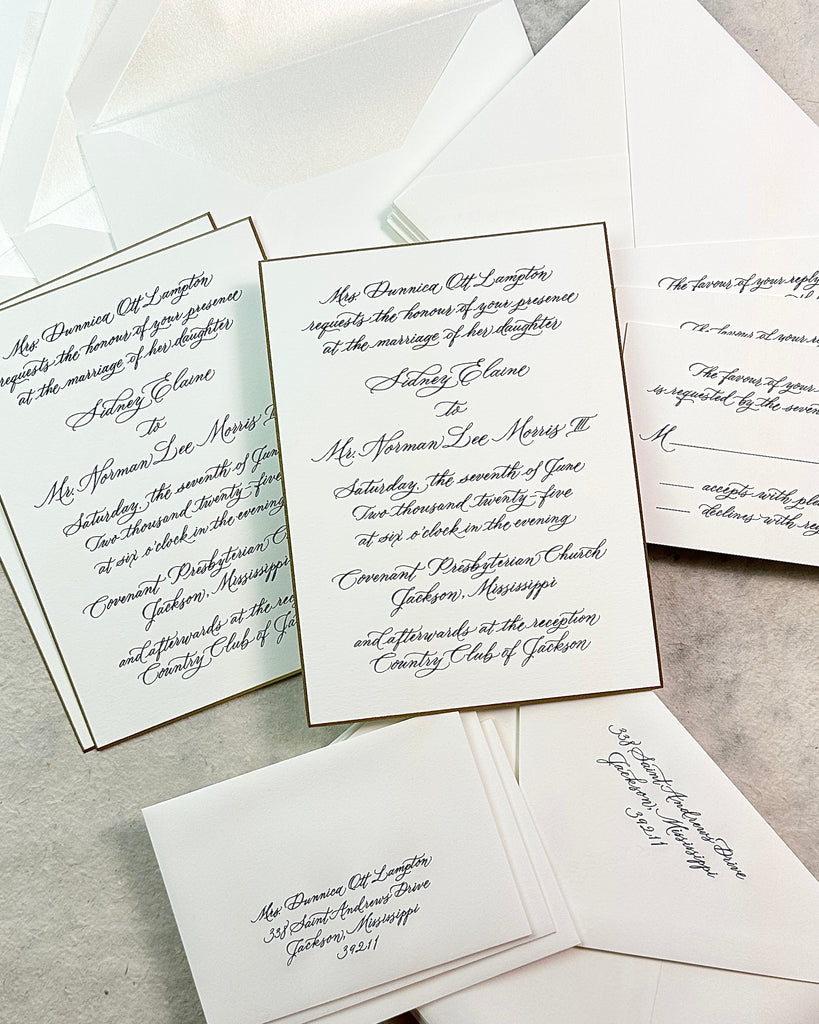 Mrs. Dunnica Ott Lampton
requests the honour of your presence
at the marriage of her daughter
Sidney Elaine
to
Mr. Norman Lee Morris
Saturday, the seventh of
Two thousand twenty-five
at six o'clock in the evening
Covenant Presbyterian
Jackson, Mississippi
and afterwards at the
Country Club of
Mrs. Dunnica Ott Lampton
requests the honour of your presence
at the marriage of her daughter
Sidney Elaine
to
Mr. Norman Lee Morris III
Saturday, the seventh of June
Two thousand twenty-five
at six o'clock in the evening
Covenant Presbyterian Church
Jackson, Mississippi
and afterwards at the reception
Country Club of Jackson
The favour of your reply
The favour of your
The favour of your
is requested by the
M
accepts with
declines with
Mrs. Dunnica Ott Lampton
338 Saint Andrews Drive
Jackson, Mississippi
39211
338 Saint Andrews Drive
Jackson, Mississippi
39211